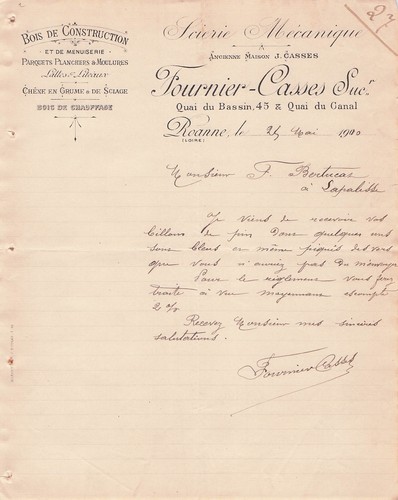 27
Bois de Construction
et de Menuiserie
Parquets Planchers & Moulures
Lattes & Liteaux
Chêne en Grume & de Sciage
Bois de Chauffage
Scierie Mécanique
Ancienne Maison J. Casses
Fournier-Casses Sucr
Quai du Bassin, 45 & Quai du Canal
Roanne, le 25 Mai 1900
(Loire)
Monsieur F. Bertucat
à Lapalisse
Je viens de recevoir vos
billons de pin Dans quelques uns
sont bleus et même piqués des vers
que vous n'auriez pas dû
Pour le règlement vous
traite à vue moyennant escompte
2 %
Recevez Monsieur mes sincères
salutations.
Fournier Casses